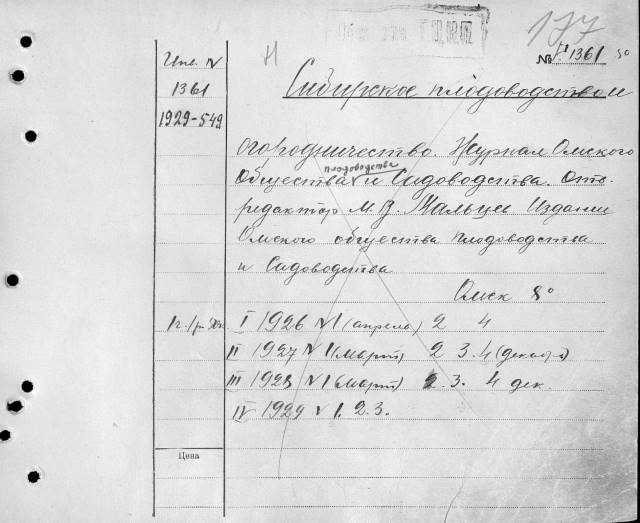 177
Инв. N
№ 1361 80
Н
1361
1929-549
Сибирское плодоводство и
огородничество. Журнал Омского
плодоводства
Общества и Садоводства. Отв.
редактор М. В. Мальцев Издание
Омского общества плодоводства
и Садоводства
Омск 8°
I 1926 N 1 (апрель) 2 4
II 1927 N 1 (март) 2 3. 4 (декабрь)
III 1928 N 1 (март) 2. 3. 4 дек.
IV 1929 N 1. 2. 3.
Цена